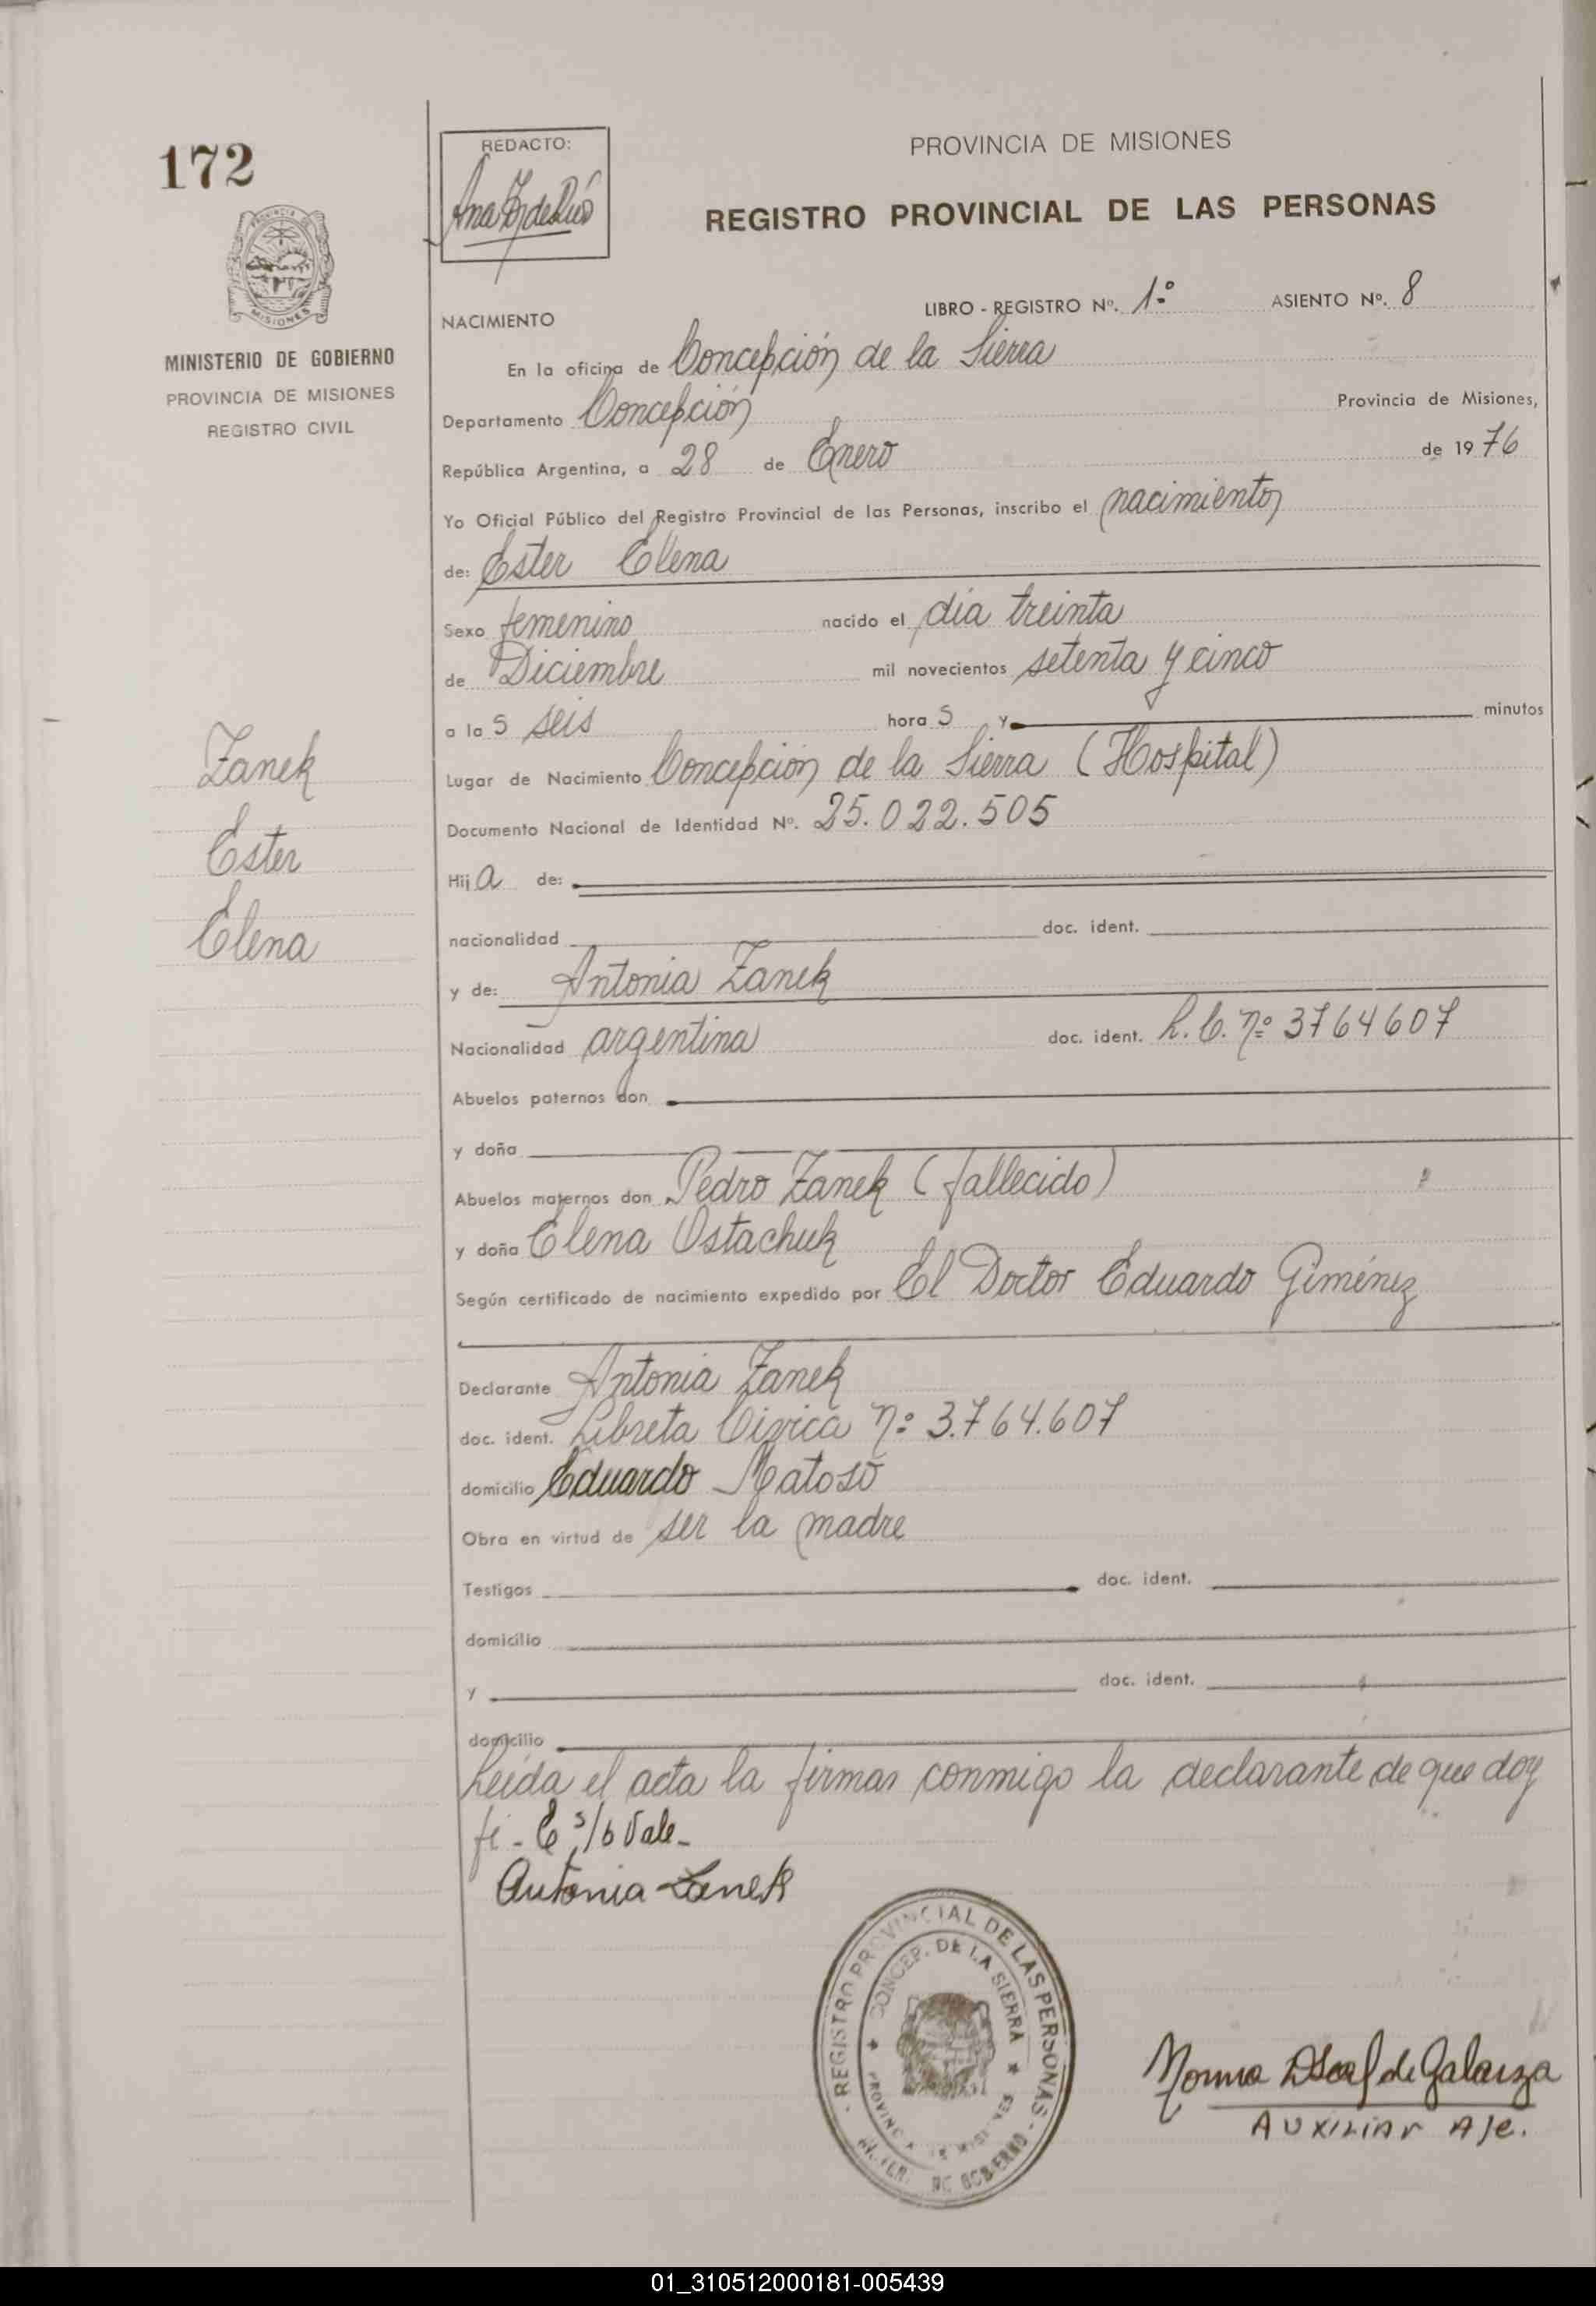 172
REDACTO:
PROVINCIA DE MISIONES
REGISTRO PROVINCIAL DE LAS PERSONAS
MISIONES
MINISTERIO DE GOBIERNO
PROVINCIA DE MISIONES
REGISTRO CIVIL
LIBRO - REGISTRO Nº. 1º ASIENTO Nº. 8
NACIMIENTO
En la oficina de Concepción de la Sierra
Departamento Concepción Provincia de Misiones,
República Argentina, a 28 de Enero de 1976
Yo Oficial Público del Registro Provincial de las Personas, inscribo el nacimiento
de: Ester Elena
Sexo femenino nacido el día treinta
de Diciembre mil novecientos setenta y cinco
a la s seis hora s y minutos
Zanek
Ester
Elena
Lugar de Nacimiento Concepción de la Sierra (Hospital)
Documento Nacional de Identidad Nº. 25.022.505
Hij a de:
nacionalidad doc. ident.
y de: Antonia Zanek
Nacionalidad argentina doc. ident. L.C. nº 3764607
Abuelos paternos don
y doña
Abuelos maternos don Pedro Zanek (fallecido)
y doña Elena Ostachuk
Según certificado de nacimiento expedido por El Doctor Eduardo Giménez
Declarante Antonia Zanek
doc. ident. Libreta Cívica nº 3.764.607
domicilio Eduardo Matoso
Obra en virtud de ser la madre
Testigos doc. ident.
domicilio
y doc. ident.
domicilio
Leída el acta la firman conmigo la declarante de que doy
fé - E s/b Vale -
Antonia Zanek
REGISTRO PROVINCIAL DE LAS PERSONAS
CONCEP. DE LA SIERRA
PROVINCIA DE MISIONES
DE GOBIERNO
Norma de Galarza
AUXILIAR A/c.
01_310512000181-005439